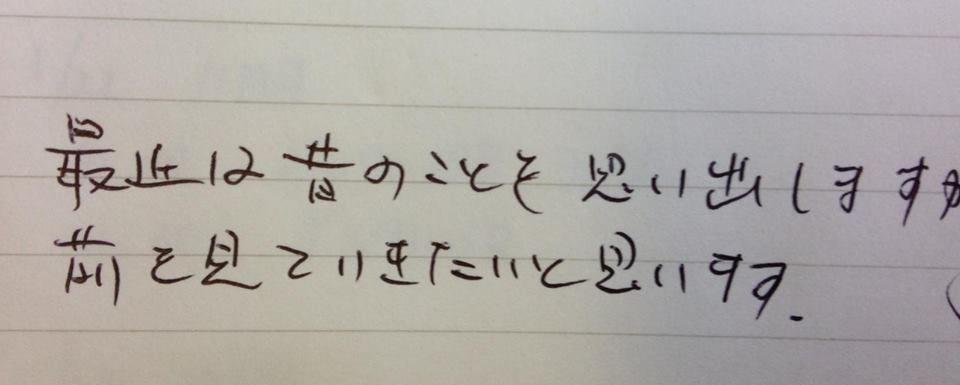 最近は昔のことを思い出しますが
前を見ていきたいと思います.